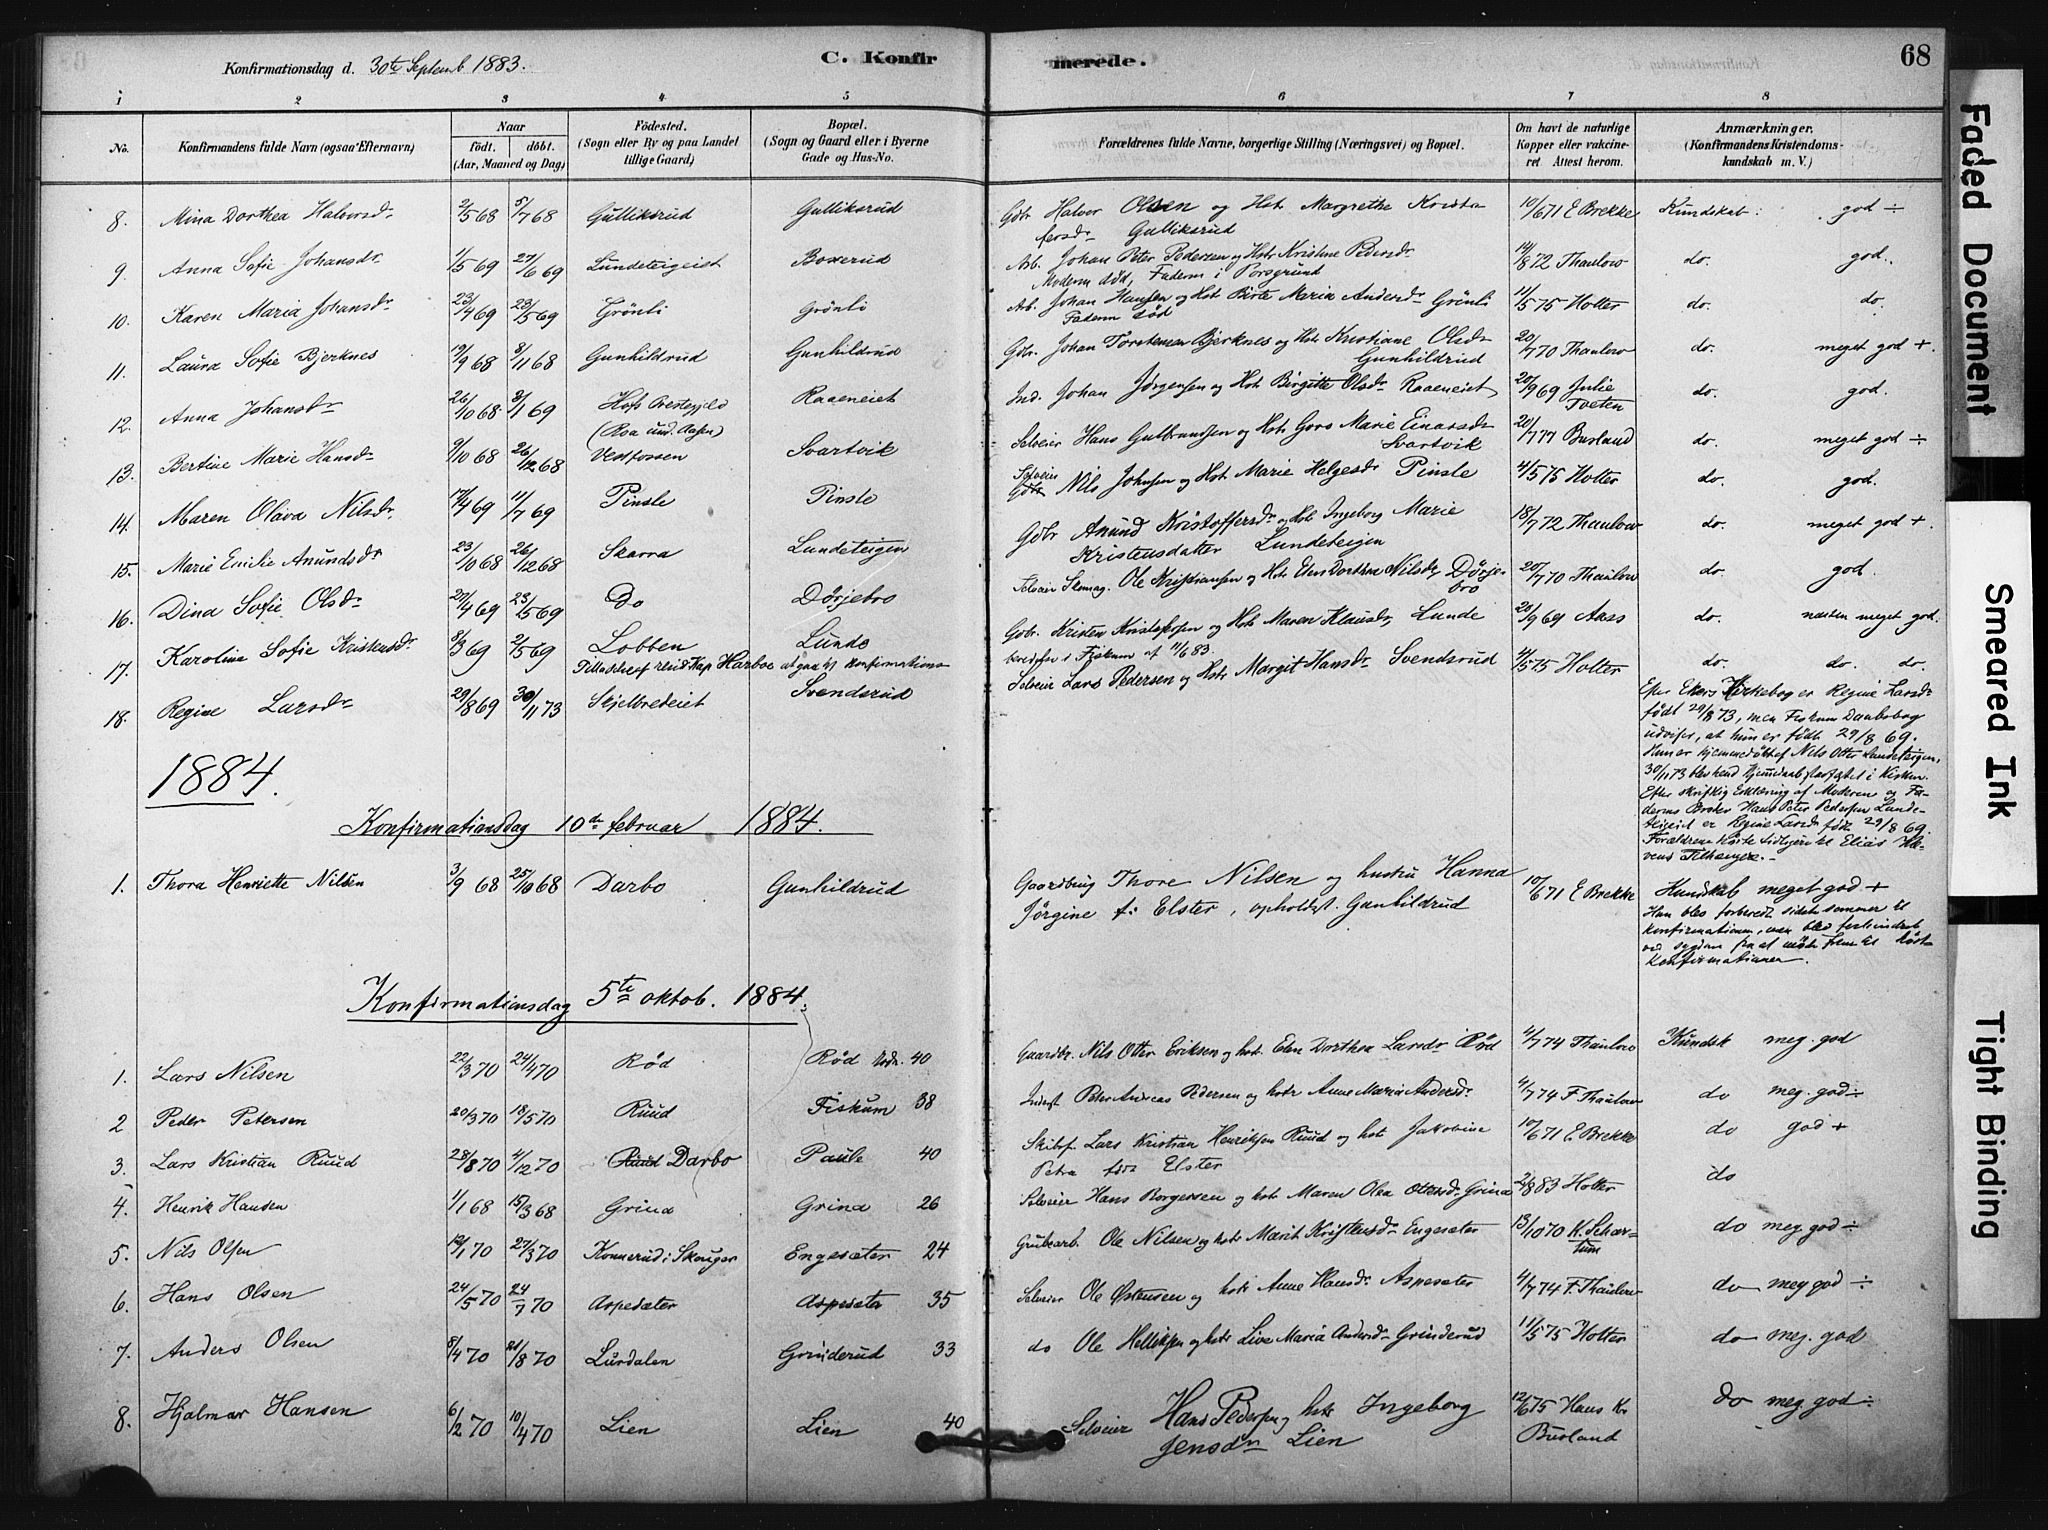 Konfirmationsdag d. 30te Septemb. 1883.
C. Konfirmerede.
68
1 2 3 4 5 6 7 8
No. Konfirmandens fulde Navn (ogsaa Efternavn)
Naar født. døbt. (Aar, Maaned og Dag)
Fødested. (Sogn eller By og paa Landet tillige Gaard)
Bopæl. (Sogn og Gaard eller i Byerne Gade og Hus-No.
Forældrenes fulde Navne, borgerlige Stilling (Næringsvei) og Bopæl.
Om havt de naturlige Kopper eller vakcineret. Attest herom.
Anmærkninger. (Konfirmandens Kristendomskundskab m. V.)
8. Mina Dorthea Halvorsdr 2/5 68 5/7 68 Gulliksrud Gulliksrud Gdbr Halver Olsen og Hst Margrethe Kristofersdr Gulliksrud 10/6 71 E Brekke Kundskab: god ÷
9. Anna Sofie Johansdr 1/5 69 27/6 69 Lundeteigeiet Boxerud Arb. Johan Peter Pedersen og Hst Kristine Pedersdr
Moderen død, Faderen i Porsgrund 14/8 72 Thaulow do. god.
10. Karen Maria Johansdr 23/4 69 23/5 69 Grönli Grönli Arb. Johan Hansen og Hst Birte Maria Andersdr Grönli
Faderen död 11/5 75 Holter do. do.
11. Laura Sofie Bjerknes 19/9 68 8/11 68 Gunhildrud Gunhildrud Gdbr. Johan Torstensen Bjerknes og Hst Kristiane Olsdr
Gunhildrud 20/7 70 Thaulow do. meget god +.
12. Anna Johansdr 26/10 68. 3/1 69 Hofs Præstegjeld
(Roa und. Aasen) Raaeneiet Ind. Johan Jørgensen og Hst Birgitte Olsdr Raaeneiet 20/9 69 Julie
Tveten do. god.
13. Bertine Marie Hansdr 9/10 68 26/12 68 Vestfossen Svartvik Selveier Hans Gulbrandsen og Hst Goro Marie Einarsdr
Svartvik 20/7 77 Busland do. meget god ÷
14. Maren Olava Nilsdr. 17/4 69 11/7 69 Pinsle Pinsle Selveier Nils Johnsen og Hst Marie Helgesdr Pinsle 4/5 75 Holter do. god.
15. Marie Emilie Anundsdr 23/10 68 26/12 68 Skarra Lundeteigen Gdbr Anund Kristoffersdr og Hst Ingeborg Marie
Kristensdatter Lundeteigen 18/7 72 Thaulow do. meget god +.
16. Dina Sofie Olsdr 27/4 69 23/5 69 Do Dørjebro Selveier Skomag. Ole Kristiansen og Hst Elen Dorthea Nilsdr, Dörjebro 20/7 70 Thaulow do. god.
17. Karoline Sofie Kristensdr 8/3 69 2/5 69 Lobben Lunde Gdbr. Kristen Kristofersen og Hst Maren Klausdr, Lunde 20/9 69 Aass do. næsten meget god.
Tilladelse af resid. Kap Harboe at gaa til konfirmationsberedelse i Fiskum af 11/6 83.
18. Regine Larsdr 29/8 69 30/11 73 Skjelbredeiet Svendsrud Selveier Lars Pedersen og Hst Margit Hansdr Svendsrud 4/5 75 Holter do. do. do.
Efter Ekers Kirkebog er Regine Larsdr
født 29/8 73, men Fiskum Daabsbog
udviser, at hun er født 29/8 69.
Hun er hjemmedøbt af Nils Otter Lundeteigen,
30/11 73 blev hend hjemmedaab stadfæstet i Kirken.
Efter skriftlig Erklæring af Moderen og Faderens Broder Hans Peter Pedersen Lundeteigeiet er Regine Larsdr født 29/8 69.
Forældrene hørte tidligere til Elias
Tilhængere.-
1884.
Konfirmationsdag 10de februar 1884.
1. Thora Henriette Nilsen 3/9 68 25/10 68 Darbo Gunhildrud Gaardbrug Thore Nilsen og hustru Hanna
Jörgine f: Elster, opholdst. Gunhildrud 10/6 71 E Brekke Kundskab meget god +
Hun blev forberedt sidste sommer til
konfirmationen, men blev forhindret
ved sygdom fra at møde frem til høst
konfirmationen.
Konfirmationsdag 5te oktob. 1884.
1. Lars Nilsen 22/3 70 24/4 70 Rød Rød 40 Gaardbr. Nils Otter Eriksen og hst. Elen Dorthea Larsdr Rød 4/7 74 Thaulow Kundsk meg. god
2 Peder Petersen 20/3 70 18/5 70 Ruud Fiskum 38 Inderst Peter Andreas Pedersen og hstr Anne Maria Andersdr. 4/7 74 F. Thaulow do meg. god ÷
3. Lars Kristian Ruud 28/8 70 4/12 70 Ruud Darbo Paule 40 Skibsf. Lars Kristian Henriksen Ruud og hst Jakobine
Petra født Elster 10/6 71 E. Brekke do god +
4. Henrik Hansen 1/1 68 15/3 68 Grina Grina 26 Selveier Hans Borgersen og hst. Maren Olea Ottersdr. Grina 2/8 83 Holter do
5. Nils Olsen 12/1 70 27/3 70 Konnerud i Skouger Engesæter 24 Grubearb. Ole Nilsen og hst Marit Kristensdr Engesæter 13/10 70 K. Schartum do meg. god ÷
6. Hans Olsen 24/5 70 24/7 70 Aspesæter Aspesæter 35 Selveier Ole Østensen og hstr Anne Hansdr Aspesæter 4/7 74 F. Thaulow do meg god ÷
7. Anders Olsen 8/4 70 21/8 70 Lurdalen Grinderud 33 do Ole Helliksen og hstr Live Maria Andersdr Grinderud 11/5 75 Holter do meg. god
8. Hjalmar Hansen 6/2 70 10/4 70 Lien Lien 40 Selveier Hans Pedersen og hstr Ingeborg
Jensdr Lien 12/6 75 Hans Kr
Busland do meg. god ÷
Faded Document
Smeared Ink
Tight Binding